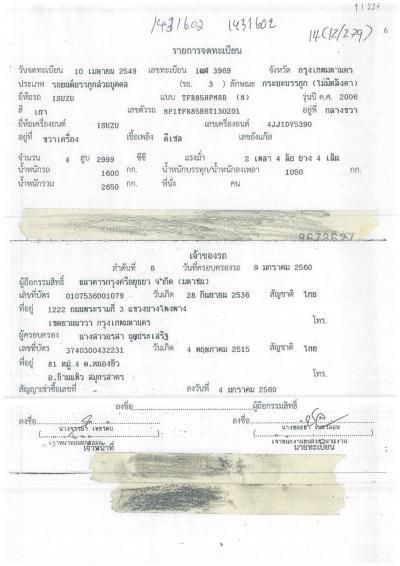 1431602 1431602 14(12/279) 6
รายการจดทะเบียน
วันจดทะเบียน 10 เมษายน 2549 เลขทะเบียน 3969 จังหวัด กรุงเทพมหานคร
ประเภท รถยนต์บรรทุกส่วนบุคคล (รย. 3 ) ลักษณะ กระบะบรรทุก (ไม่มีหลังคา)
ยี่ห้อรถ ISUZU แบบ TFR85HPM8B (M) รุ่นปี ค.ศ. 2006
สี เทา เลขตัวรถ MP1TFR85H6T130201 อยู่ที่ กลางขวา
ยี่ห้อเครื่องยนต์ ISUZU เลขเครื่องยนต์ 4JJ1DV5390
อยู่ที่ ขวาเครื่อง เชื้อเพลิง ดีเซล เลขถังแก๊ส
จำนวน 4 สูบ 2999 ซีซี แรงม้า 2 เพลา 4 ล้อ ยาง 4 เส้น
น้ำหนักรถ 1600 กก. น้ำหนักบรรทุก/น้ำหนักลงเพลา 1050 กก.
น้ำหนักรวม 2650 กก. ที่นั่ง คน
เจ้าของรถ
ลำดับที่ 8 วันที่ครอบครองรถ 9 มกราคม 2560
ผู้ถือกรรมสิทธิ์ ธนาคารกรุงศรีอยุธยา จำกัด (มหาชน)
เลขที่บัตร 0107536001079 วันเกิด 28 กันยายน 2536 สัญชาติ ไทย
ที่อยู่ 1222 ถนนพระรามที่ 3 แขวงบางโพงพาง
เขตยานนาวา กรุงเทพมหานคร โทร.
ผู้ครอบครอง นางสาวอรสา บุญประเสริฐ
เลขที่บัตร 3740300432231 วันเกิด 4 พฤษภาคม 2515 สัญชาติ ไทย
ที่อยู่ 81 หมู่ 4 ต.หนองบัว
อ.บ้านแพ้ว สมุทรสาคร โทร.
สัญญาเช่าซื้อเลขที่ - ลงวันที่ 4 มกราคม 2560
ลงชื่อ ผู้ถือกรรมสิทธิ์
ลงชื่อ ลงชื่อ
เจ้าหน้าที่ นายทะเบียน